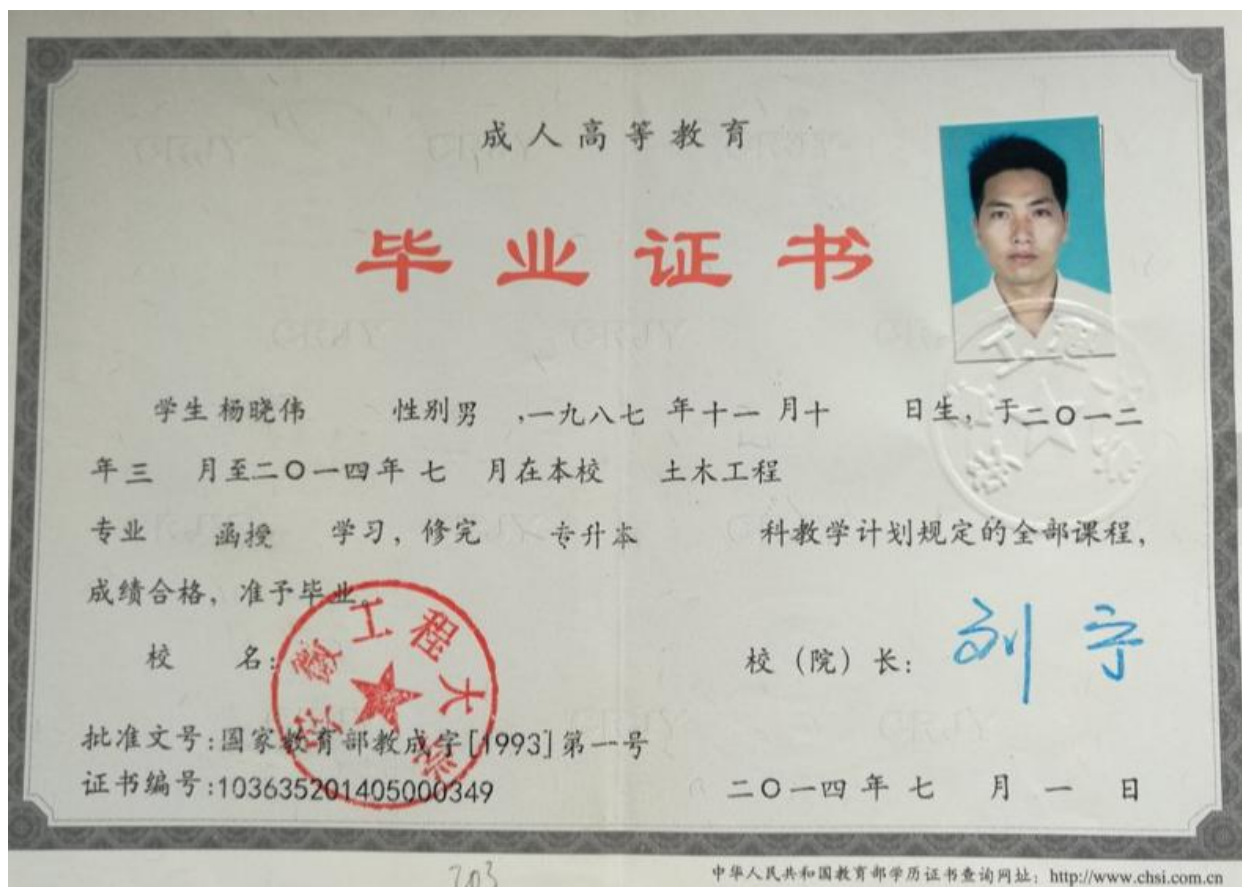 成人高等教育
毕业证书
学生 杨晓伟 性别 男 ,一九八七 年十一 月十 日生, 于二〇一二
年三 月至二〇一四年 七 月在本校 土木工程
专业 函授 学习, 修完 专升本 科教学计划规定的全部课程,
成绩合格, 准予毕业。
校 名: 安徽工程大学
校(院)长: 刘宁
批准文号:国家教育部教成字[1993]第一号
证书编号:103635201405000349
二〇一四 年 七 月 一 日
203
中华人民共和国教育部学历证书查询网址: http://www.chsi.com.cn